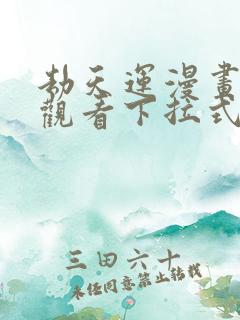 劫天運漫畫
觀看下拉式
三田六十
未任同意禁止轉載